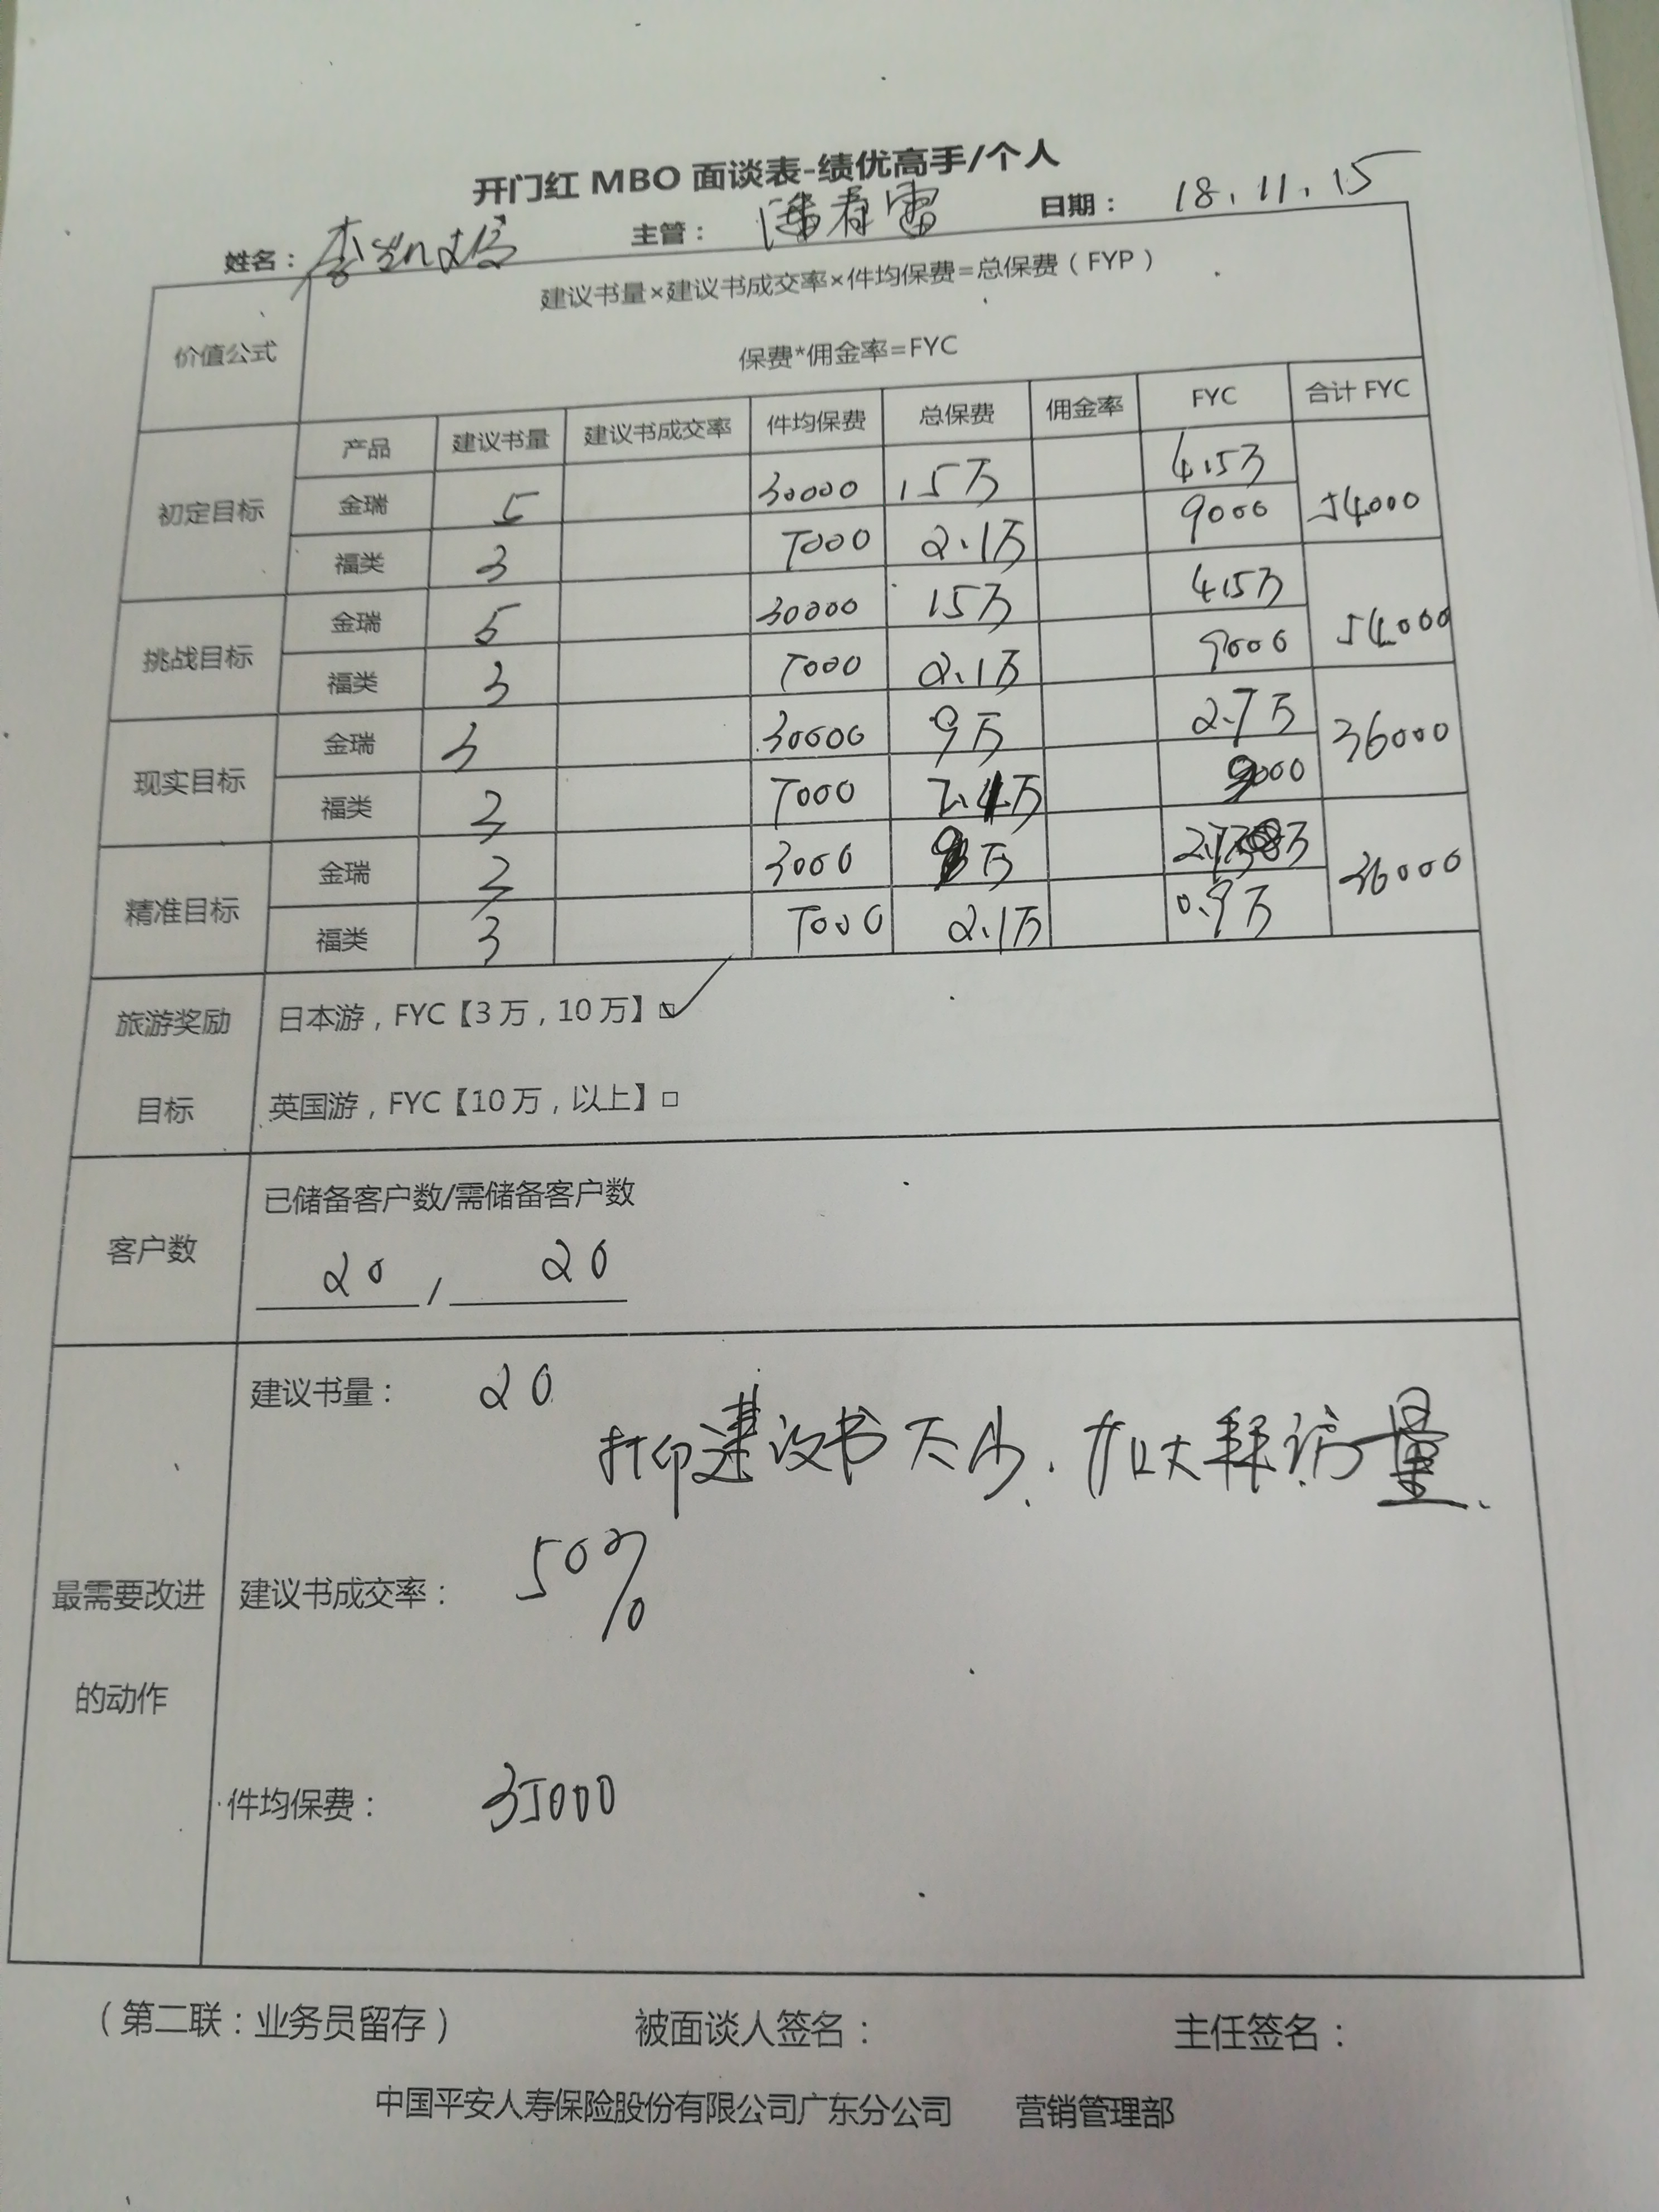 开门红 MBO 面谈表-绩优高手/个人
姓名： 主管：潘春雷 日期：18.11.15
价值公式
建议书量×建议书成交率×件均保费=总保费（FYP）
保费*佣金率=FYC
产品 建议书量 建议书成交率 件均保费 总保费 佣金率 FYC 合计 FYC
初定目标
金瑞 5 30000 15万 4.5万
福类 3 7000 2.1万 9000
54000
挑战目标
金瑞 5 30000 15万 4.5万
福类 3 7000 2.1万 9000
54000
现实目标
金瑞 3 30000 9万 2.7万
福类 3 7000 2.1万 9000
36000
精准目标
金瑞 3 3000 9万
福类 3 7000 2.1万 0.9万
36000
旅游奖励
目标
日本游，FYC【3万，10万】□✓
英国游，FYC【10万，以上】□
客户数
已储备客户数/需储备客户数
20 / 20
最需要改进
的动作
建议书量： 20
打印建议书太少. 加大拜访量.
建议书成交率： 50%
件均保费： 35000
（第二联：业务员留存） 被面谈人签名： 主任签名：
中国平安人寿保险股份有限公司广东分公司 营销管理部